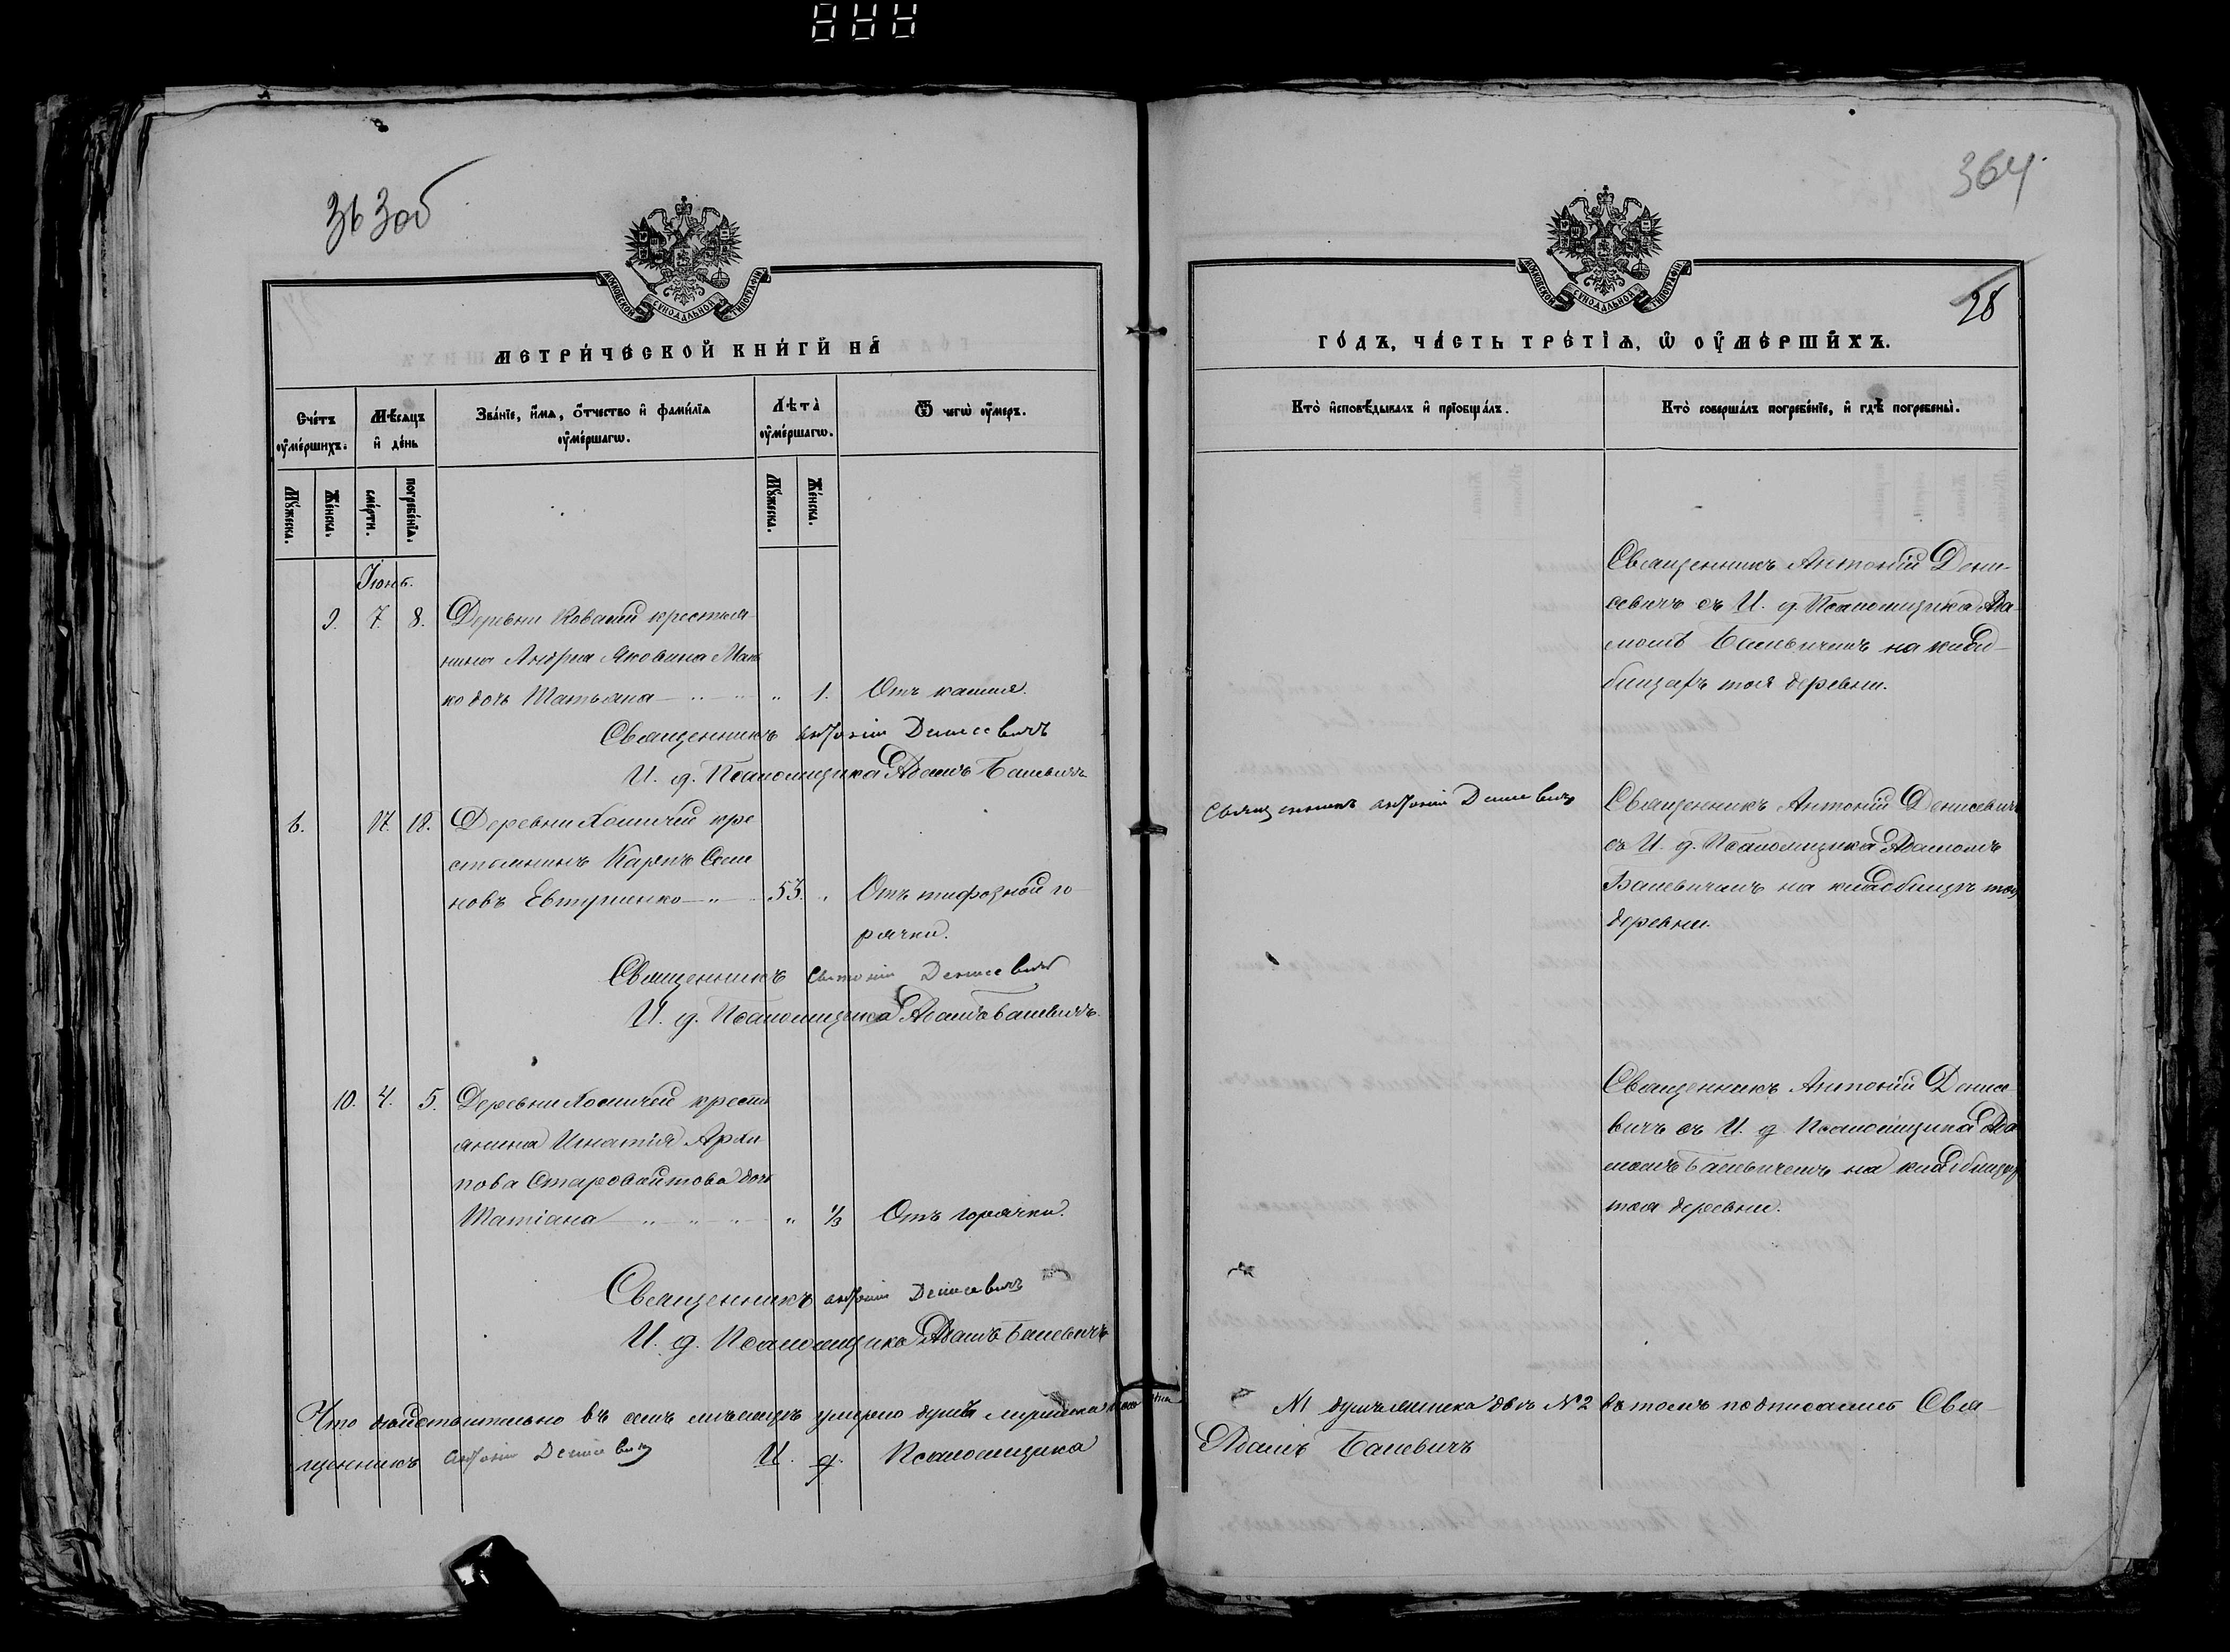 363 об
МОСКОВСКОЙ СѴНОДАЛЬНОЙ ТИПОГРАФІИ
МЕТРИ́ЧЕСКОЙ КНИ́ГИ НА
Сче́тъ ᲂу҆ме́ршихъ.
Мѣ́сяцъ и҆ де́нь
Зва́нїе, и҆́мѧ, ѻ҆́тчество и҆ фамѝлїѧ ᲂу҆ме́ршагѡ.
Лѣ́та ᲂу҆ме́ршагѡ.
Ѿ чегѡ̀ ᲂу҆ме́ръ.
Мꙋ́жеска.
Же́нска.
сме́рти.
погребе́нїѧ.
Мꙋ́жеска.
Же́нска.
Іюнь.
9. 7. 8. Деревни Ковалей крестья-
нина Андрея Яковина Мань
ко дочь Татьяна — „ — „ 1. Отъ кашля.
Священникъ Антоній Денисевичъ
И. д. Псаломщика Адамъ Балевичъ
6. 17. 18. Деревни Хомичей кре
стьянинъ Карпъ Семе
новъ Евтушенко — „ — 53. „ Отъ тифозной го
рячки.
Священникъ Антоній Денисевичъ
И. д. Псаломщика Адамъ Балевичъ.
10. 4. 5. Деревни Хомичей кресть
янина Игнатія Архи
пова Старовойтова дочь
Татіана — „ — „ — „ 1/3 Отъ горячки.
Священникъ Антоній Денисевичъ
И. д. Псаломщика Адамъ Балевичъ
Что дѣйствительно въ семъ мѣсяцѣ умерло душъ мужеска пола
щенникъ Антоній Денисевичъ И. д. Псаломщика
364
МОСКОВСКОЙ СѴНОДАЛЬНОЙ ТИПОГРАФІИ
28
ГО́ДЪ, ЧА́СТЬ ТРЕ́ТЇѦ, Ѡ҆ ОУ҆МЕ́РШИХЪ.
Кто̀ и҆сповѣ́дывалъ и҆ прїѡбща́лъ.
Кто̀ соверша́лъ погребе́нїе, и҆ гдѣ̀ погребены̀.
Священникъ Антоній Дени-
севичъ съ И. д. Псаломщика Ада
момъ Балевичемъ на клад-
бищѣ тоя деревни.
Священникъ Антоній Денисевичъ
Священникъ Антоній Денисевичъ
съ И. д. Псаломщика Адамомъ
Балевичемъ на кладбищѣ тоя
деревни.
Священникъ Антоній Денисе
вичъ съ И. д. Псаломщика Ада
момъ Балевичемъ на кладбищѣ
тоя деревни.
№1 душъ женска двѣ №2 въ томъ подписались Свя-
Адамъ Балевичъ